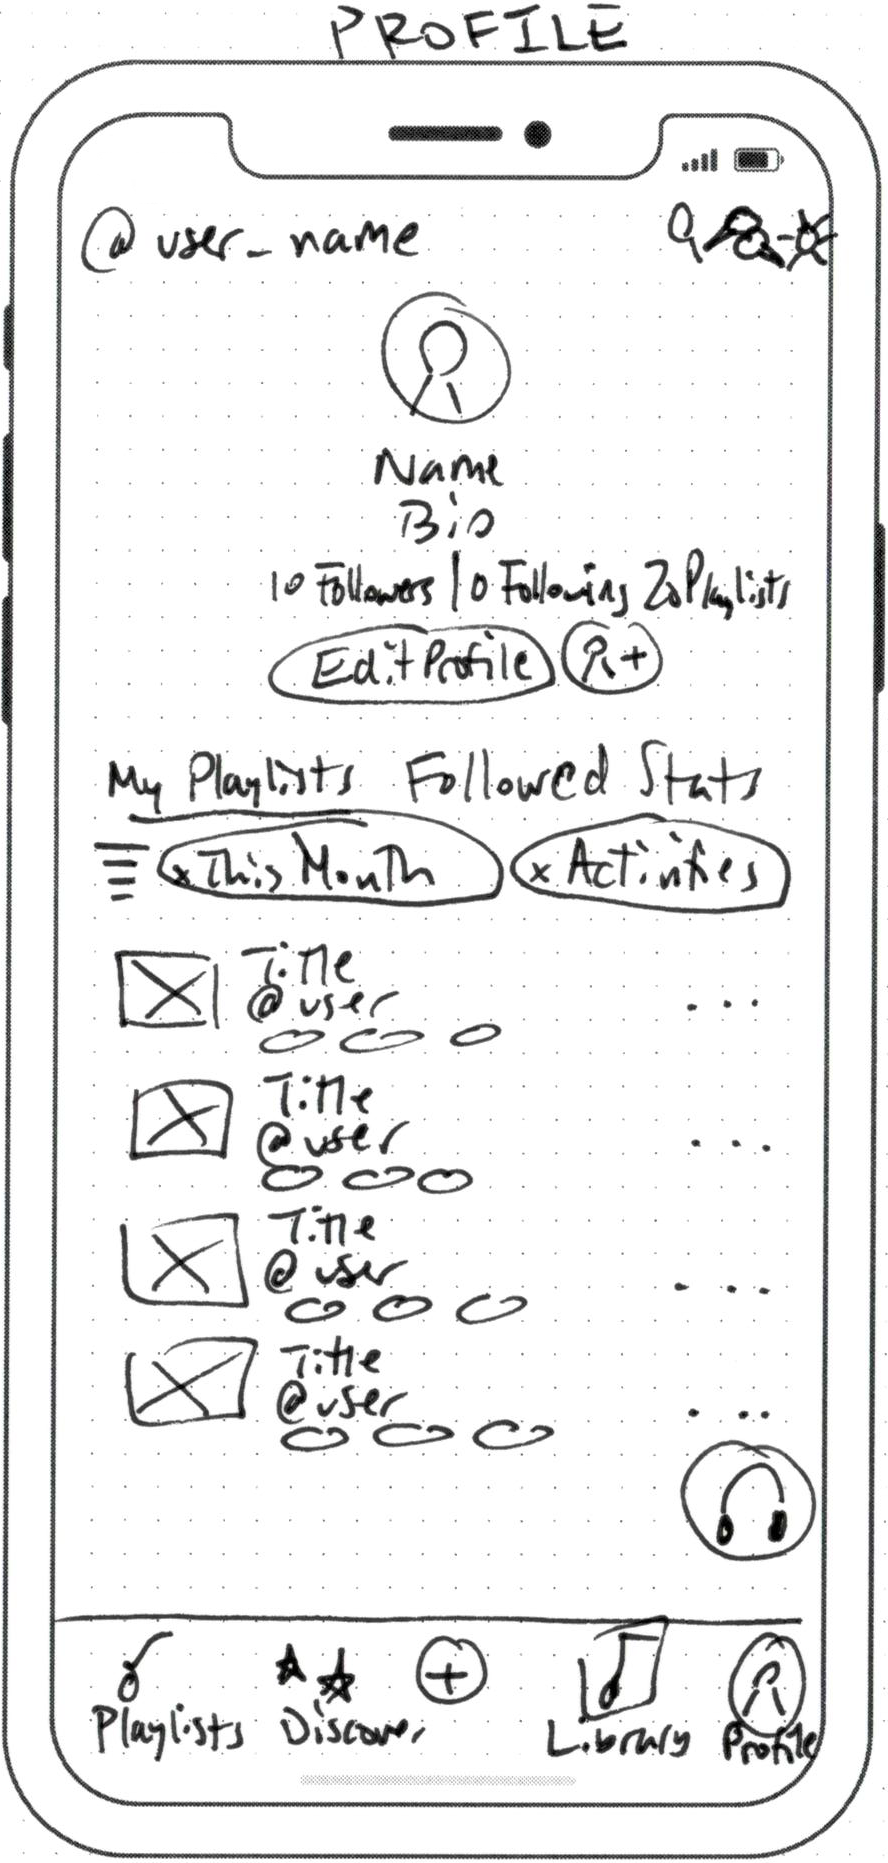 PROFILE
@user_name
Name
Bio
10 Followers | 0 Following 20 Playlists
Edit Profile +
My Playlists Followed Stats
x This Month x Activities
Title
@user
...
Title
@user
...
Title
@user
...
Title
@user
...
+
Playlists Discover Library Profile